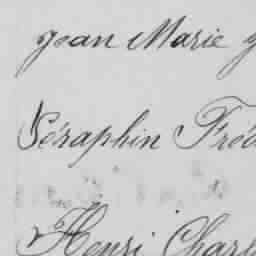 Jean Marie
Séraphin Fréd
Henri Charl